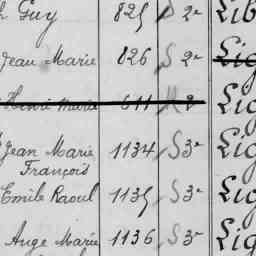 Guy 825 S 2e Lib
Jean Marie 826 S 2e Lig
Henri Marie 611 2 Lig
Jean Marie 1134 S 3e Lig
François
Emile Raoul 1135 S 3e Lig
Ange Marie 1136 S 3e Lig